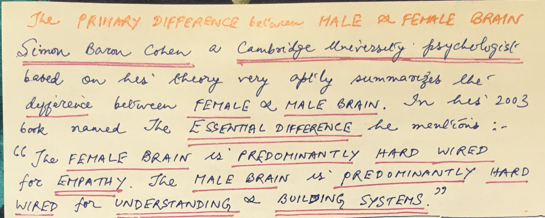 The PRIMARY DIFFERENCE between MALE & FEMALE BRAIN
Simon Baron Cohen a Cambridge University psychologist
based on his theory very aptly summarizes the
difference between FEMALE & MALE BRAIN. In his 2003
book named The ESSENTIAL DIFFERENCE he mentions :-
"The FEMALE BRAIN is PREDOMINANTLY HARD WIRED
for EMPATHY. The MALE BRAIN is PREDOMINANTLY HARD
WIRED for UNDERSTANDING & BUILDING SYSTEMS."